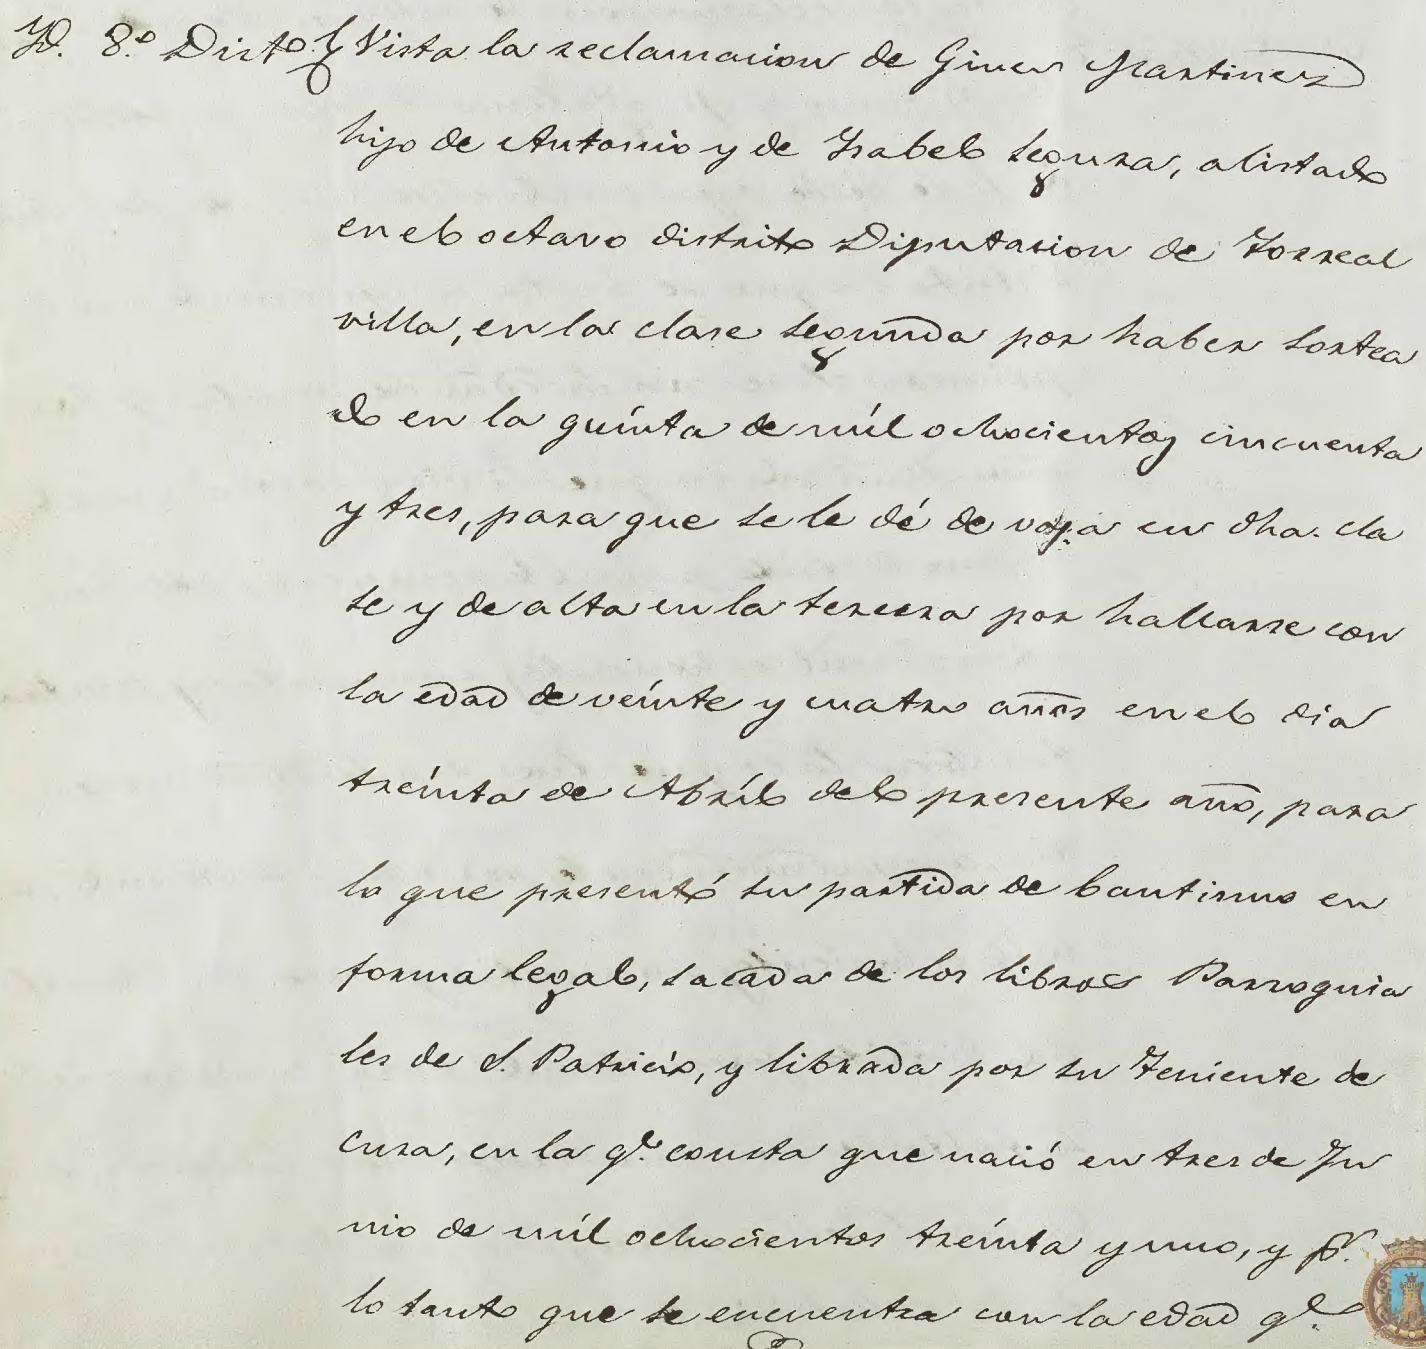 Yd. 8.º Disto. Vista la reclamacion de Gines Martinez
hijo de Antonio y de Ysabel Segura, alistado
en el octavo distrito Diputacion de Torreal
villa, en la clase segunda por haber sortea
do en la quinta de mil ochocientos cincuenta
y tres, para que se le dé de vaja en dha. cla
se y de alta en la tercera por hallarse con
la edad de veinte y cuatro años en el dia
treinta de Abril del presente año, para
lo que presentó su partida de bautismo en
forma legal, sacada de los libros Parroquia
les de S. Patricio, y librada por su Teniente de
cura, en la ql. consta que nació en tres de Ju
nio de mil ochocientos treinta y uno, y pr.
lo tanto que se encuentra con la edad ql.